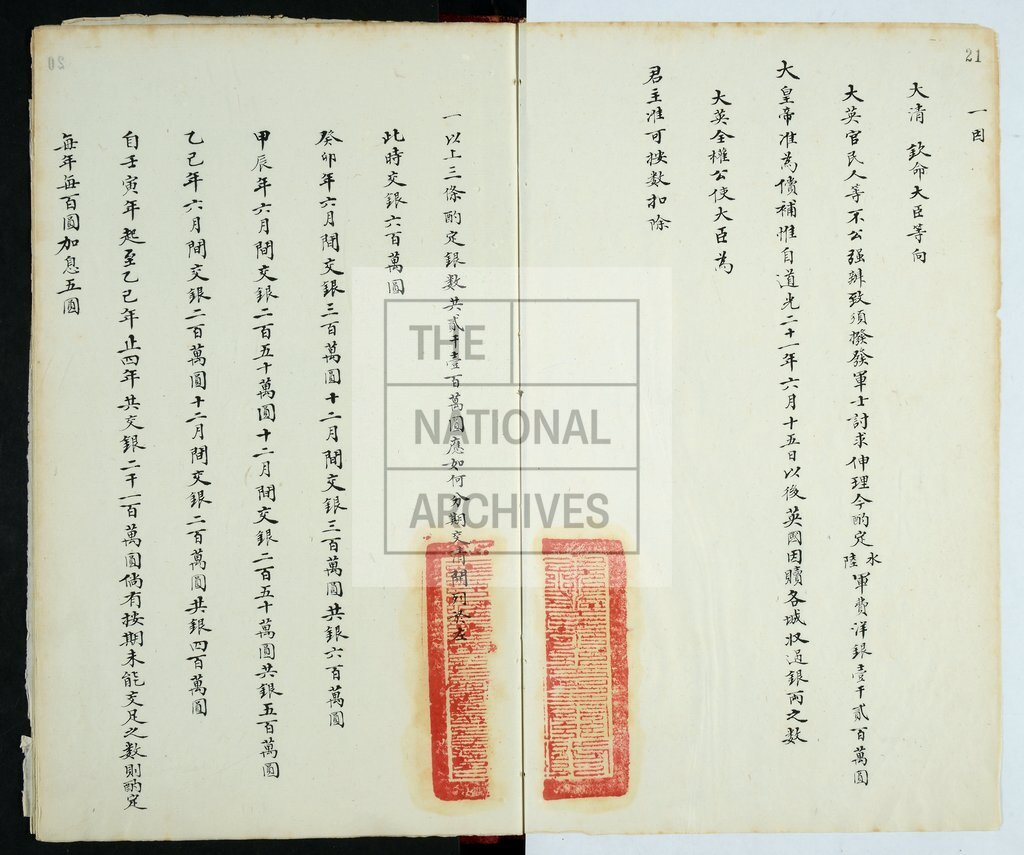 21
一因
大清 欽命大臣等向
大英官民人等不公强辦致須撥發軍士討求伸理今酌定水陸軍費洋銀壹千貳百萬圓
大皇帝准為償補惟自道光二十一年六月十五日以後英國因贖各城收過銀兩之數
大英全權公使大臣為
君主准可按數扣除
一以上三條酌定銀數共貳千壹百萬圓應如何分期交清開列於左
此時交銀六百萬圓
癸卯年六月間交銀三百萬圓十二月間交銀三百萬圓共銀六百萬圓
甲辰年六月間交銀二百五十萬圓十二月間交銀二百五十萬圓共銀五百萬圓
乙巳年六月間交銀二百萬圓十二月間交銀二百萬圓共銀四百萬圓
自壬寅年起至乙巳年止四年共交銀二千一百萬圓倘有按期未能交足之數則酌定
每年每百圓加息五圓
20
THE
NATIONAL
ARCHIVES